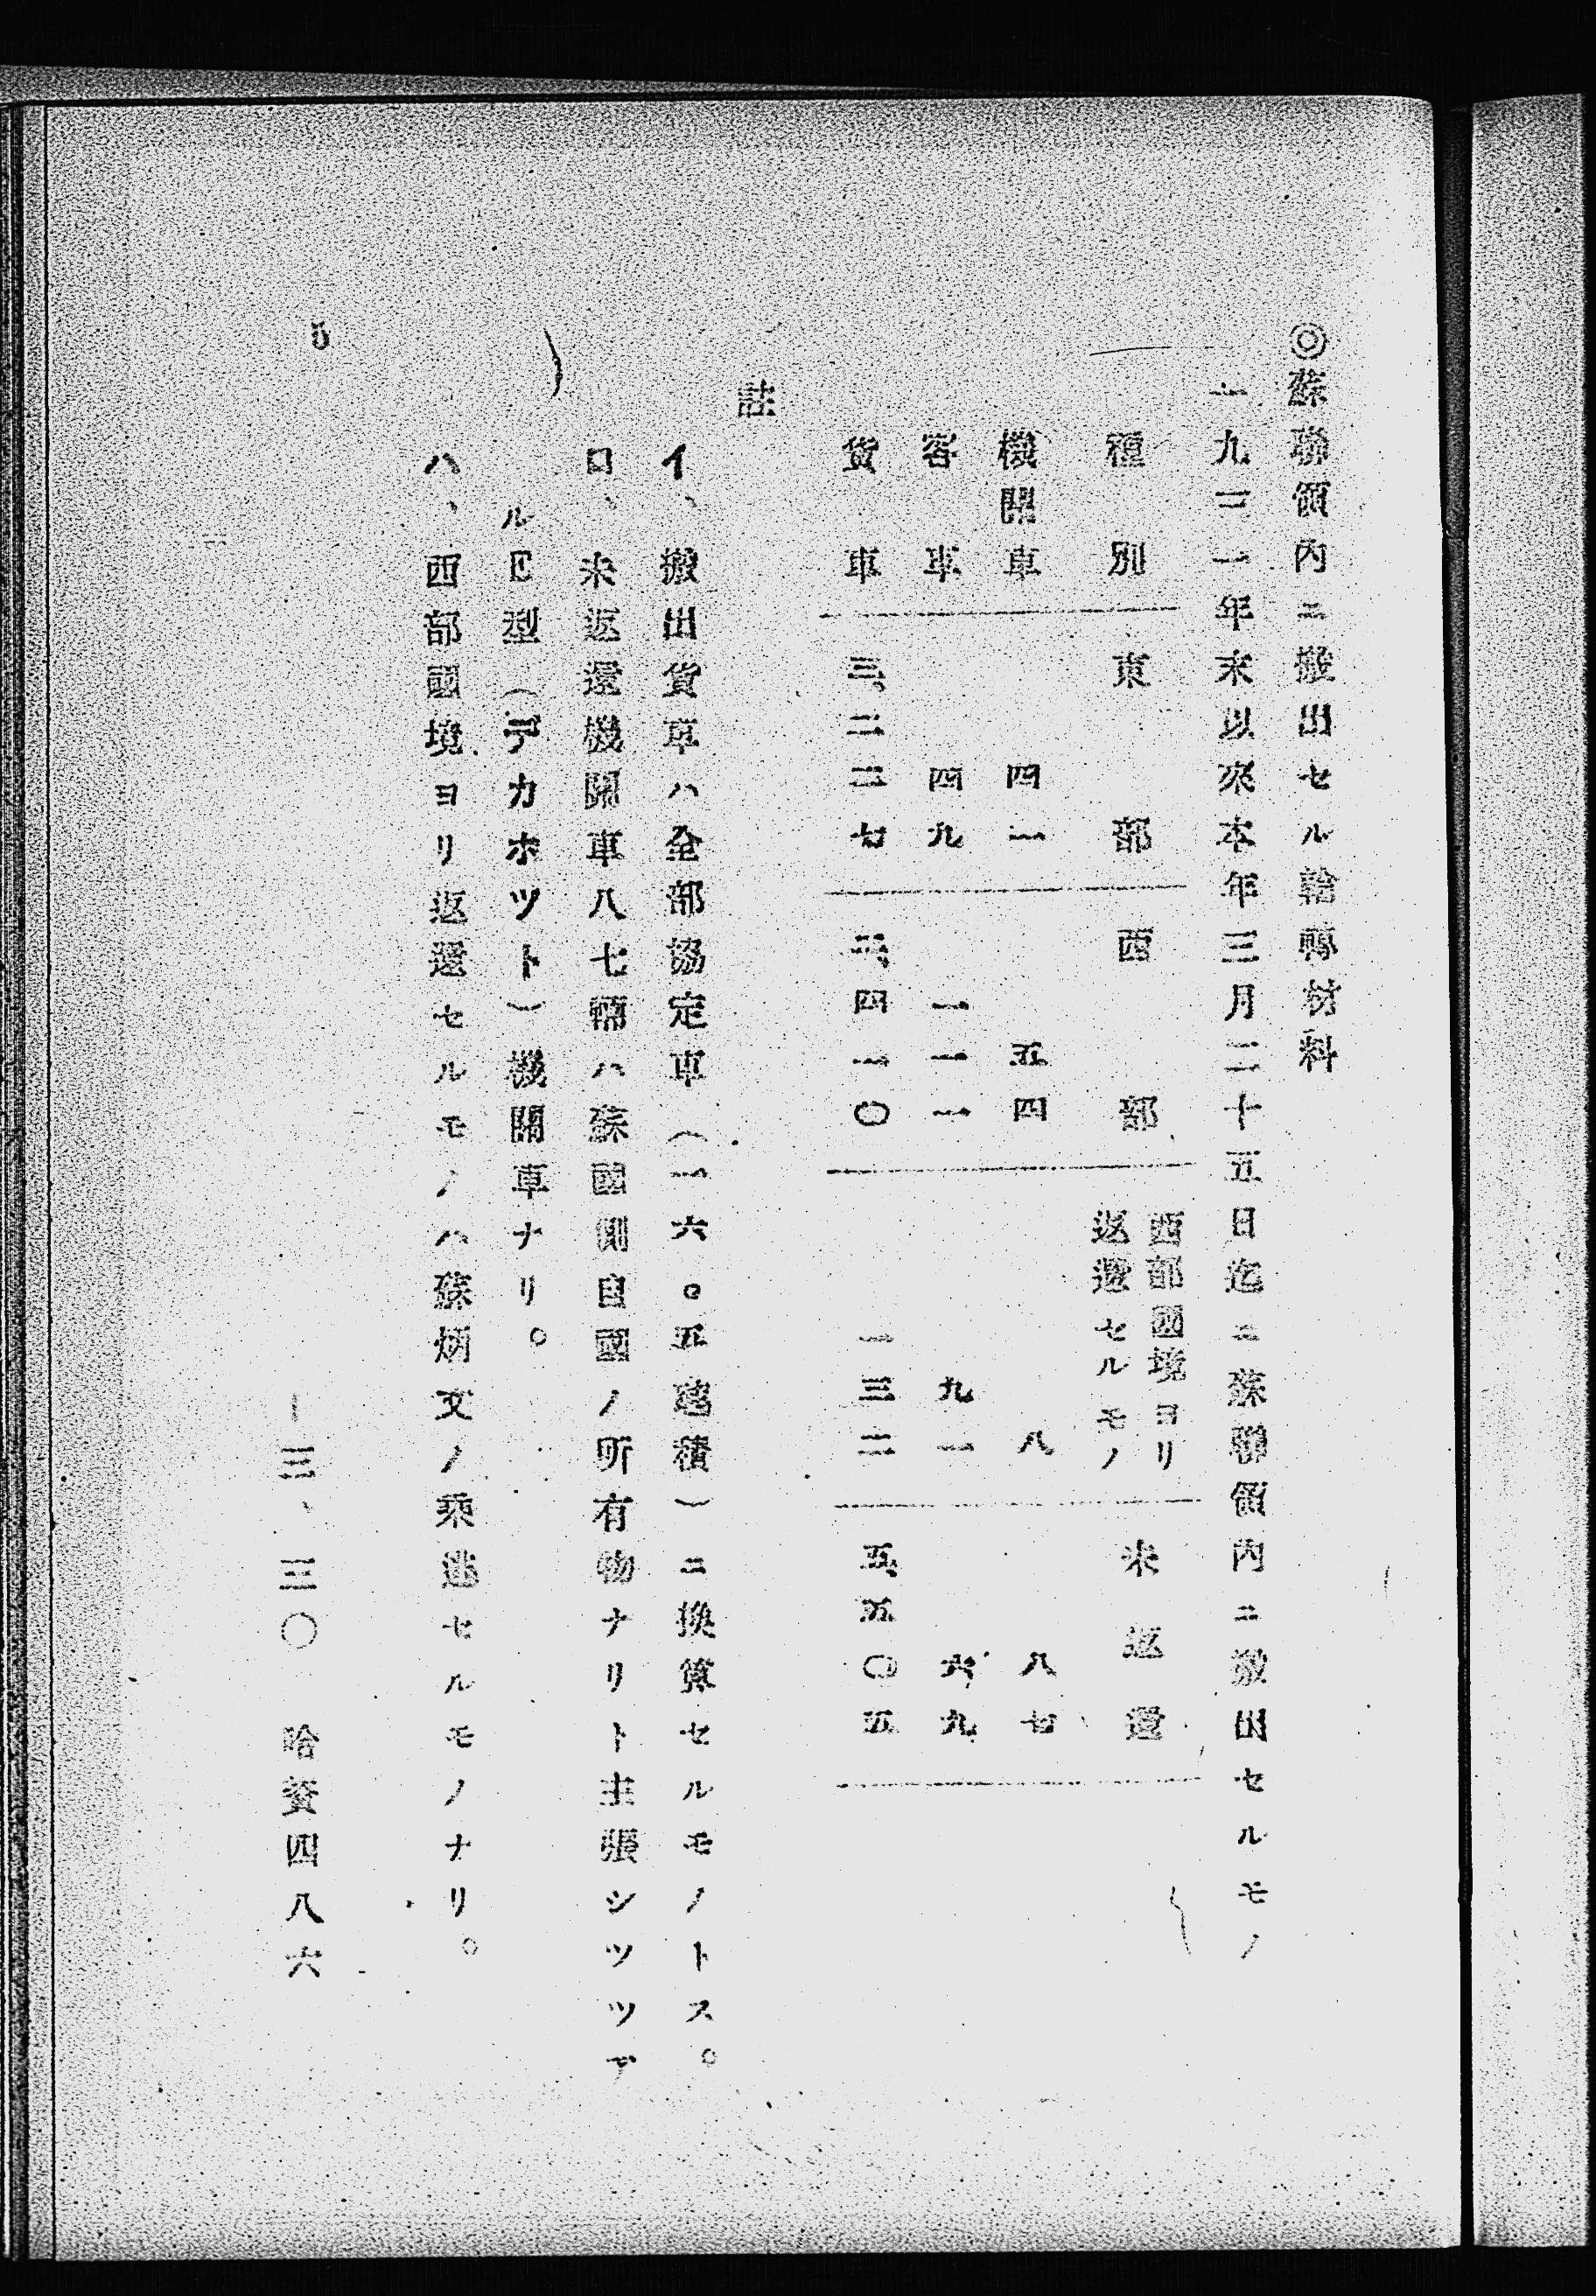 ◎蘇聯領內ニ搬出セル輪轉材料
一九三一年末以來本年三月二十五日迄ニ蘇聯領內ニ搬出セルモノ
種別 東部 西部 西部國境ヨリ返還セルモノ 未返還
機關車 四一 五四 八 八七
客車 四九 一一一 九一 六九
貨車 三、二二七 二、四一〇 一三二 五、五〇五
註
イ、搬出貨車ハ全部協定車（一六。五瓲積）ニ換算セルモノトス。
ロ、未返還機關車八七輛ハ蘇國側自國ノ所有物ナリト主張シツツア
ルE型（デカホツト）機關車ナリ。
ハ、西部國境ヨリ返還セルモノハ蘇炳文ノ乘逃セルモノナリ。
5
―三、三〇 哈資四八六